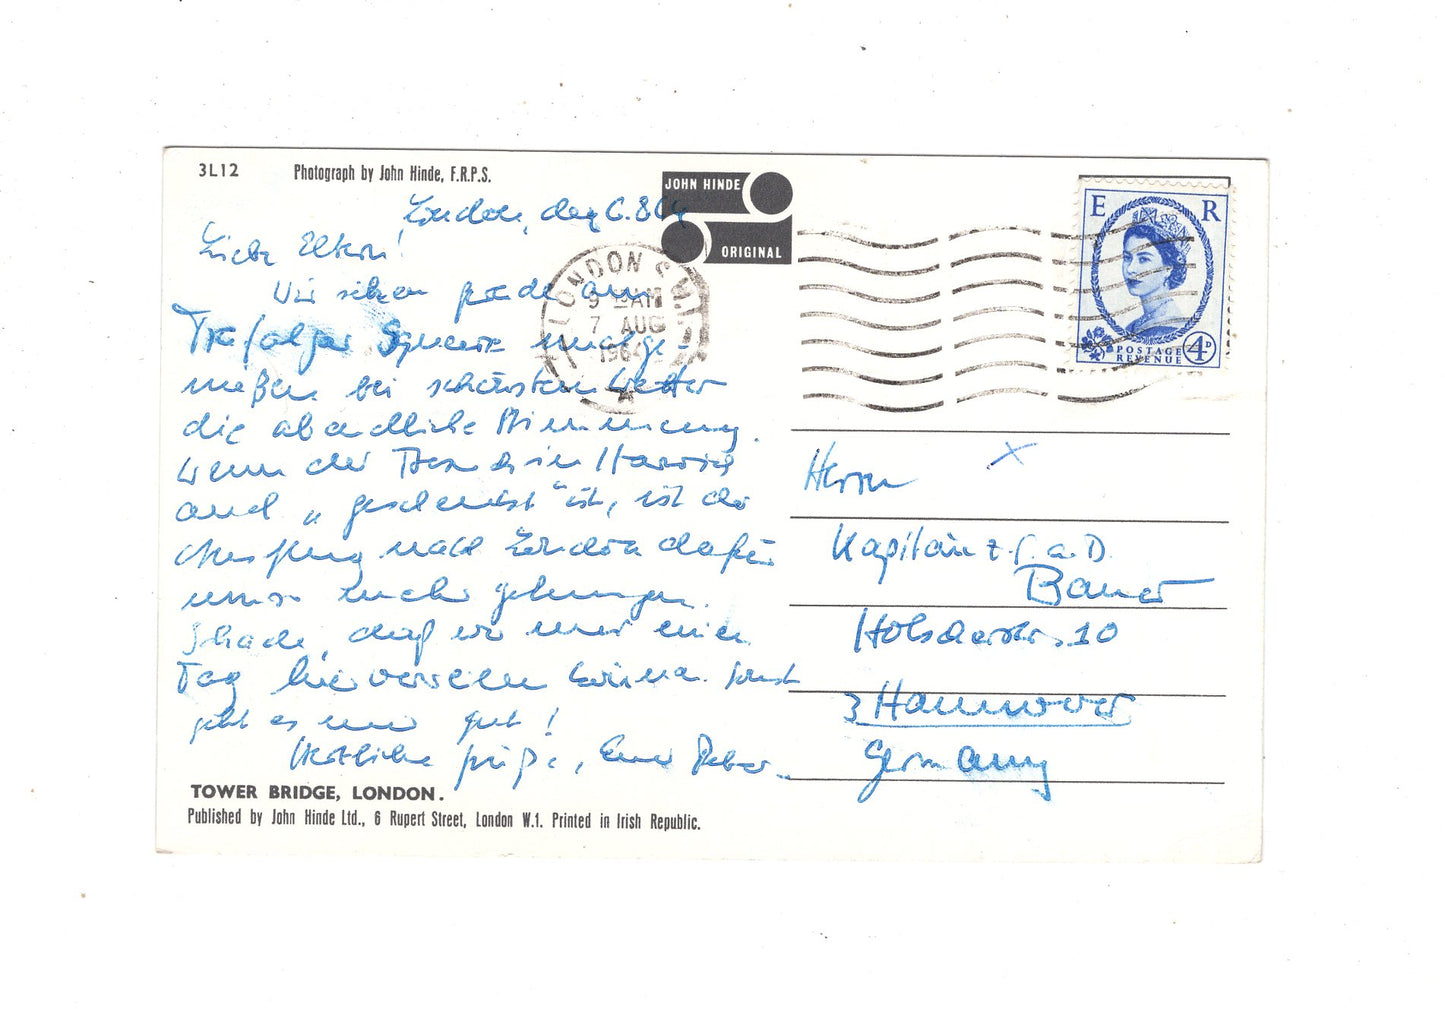 3L12
Photograph by John Hinde, F.R.P.S.
JOHN HINDE
ORIGINAL
London, den 6.8.64
Liebe Eltern!
Wir sitzen grade am
Trafalgar Square und ge-
nießen bei schönstem Wetter
die abendliche Stimmung.
Wenn der Harwich
auch „ " ist, ist der
Ausflug nach London dafür
gelungen.
Schade, daß wir nur einen
Tag hier verweilen können. Sonst
geht es mir gut!
Herzliche Grüße, Euer Peter
LONDON S.W.1
9 AM
7 AUG
1964
A
E R
POSTAGE
REVENUE
4D
Herrn
Kapitän z. S. a. D.
Bauer
Hölscherstr. 10
3 Hannover
Germany
TOWER BRIDGE, LONDON.
Published by John Hinde Ltd., 6 Rupert Street, London W.1. Printed in Irish Republic.